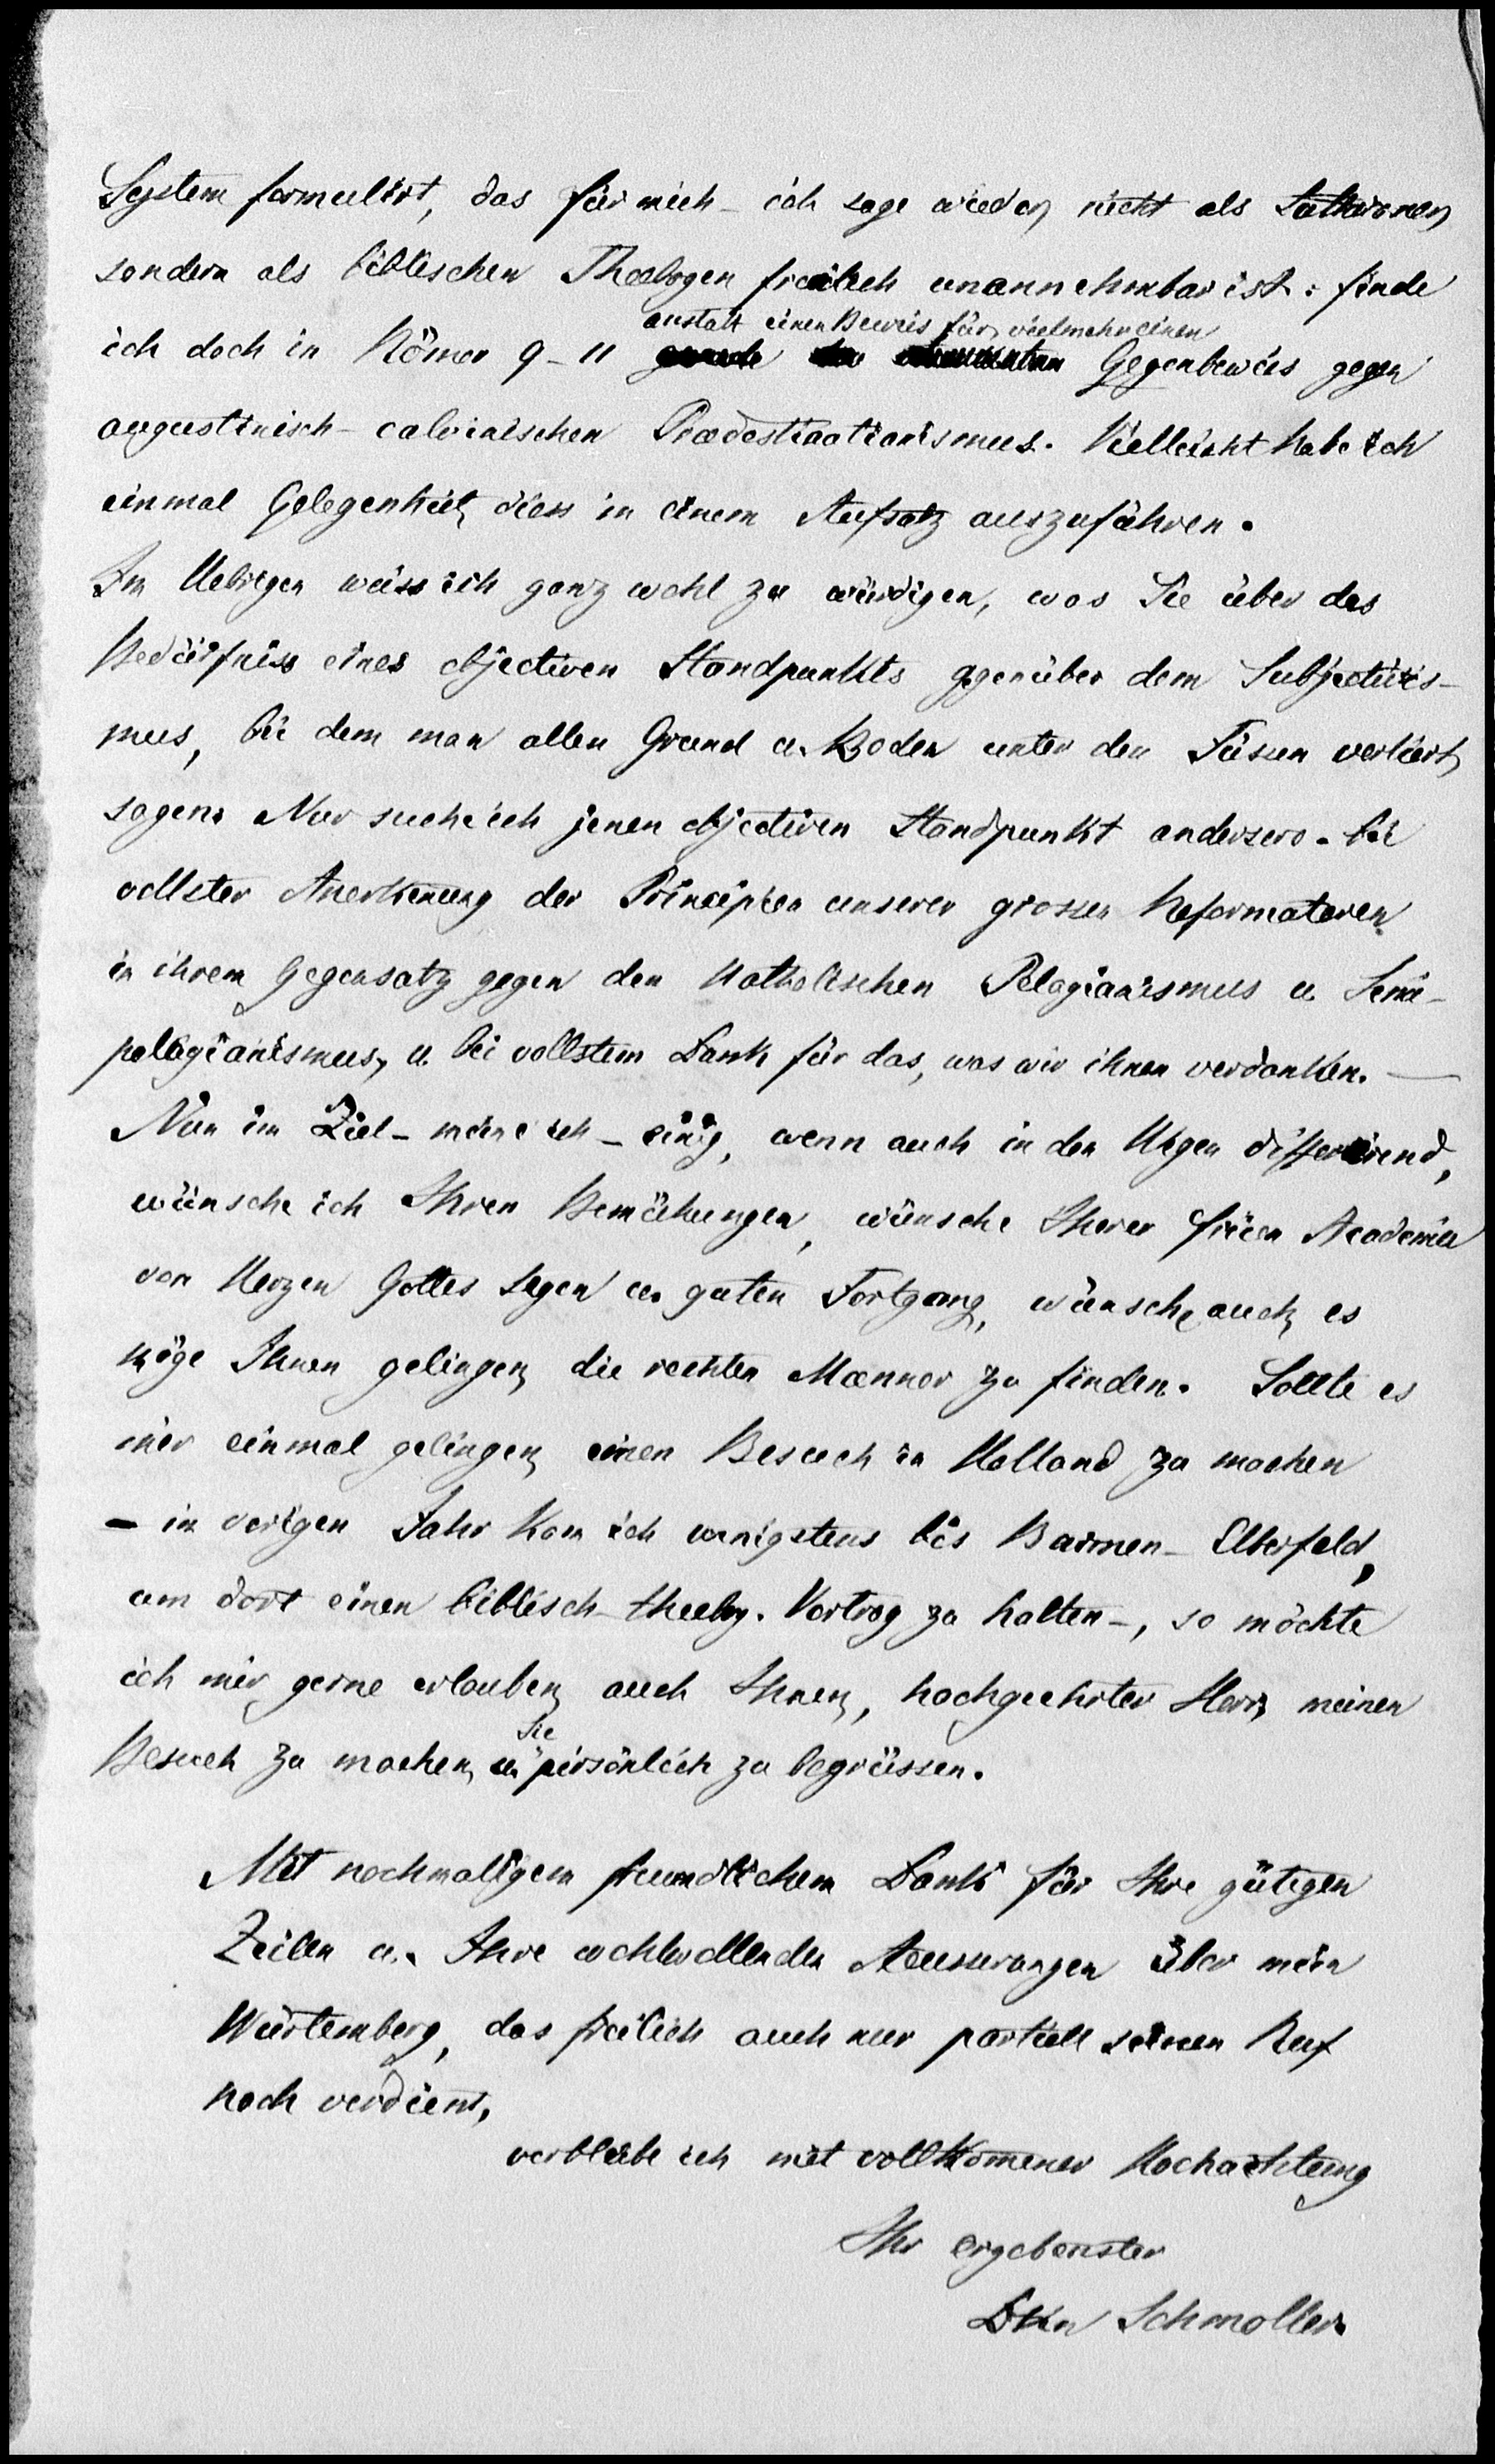 System formulirt, das für mich - ich sage wieder nicht als Lutheraner,
sondern als biblischen Theologen freilich unannehmbar ist: finde
anstatt einen Beweis für, vielmehr einen
ich doch in Römer 9-11 Gegenbeweis gegen
augustinisch-calvinischen Prædestinatianismus. Vielleicht habe ich
einmal Gelegenheit, diess in einem Aufsatz auszuführen.
Im Uebrigen weiss ich ganz wohl zu würdigen, was Sie über das
Bedürfniss eines objectiven Standpunkts ggenüber dem Subjectivis-
mus, bei dem man allen Grund u. Boden unter den Füssen verliert,
sagen. Nur suche ich jenen objectiven Standpunkt anderswo - bei
vollster Anerkenung der Principien unserer grossen Reformatoren
in ihrem Gegensatz gegen den katholischen Pelagianismus u Semi-
pelagianismus, u bei vollstem Dank für das, was wir ihnen verdanken. —
Nun im Ziel - meine ich - einig, wenn auch in den Wegen differirend,
wünsche ich Ihren Bemühungen, wünsche Ihrer freien Academie
von Herzen Gottes Segen u. guten Fortgang, wünsche auch, es
möge Ihnen gelingen, die rechten Mænner zu finden. Sollte es
mir einmal gelingen, einen Besuch in Holland zu machen
- im vorigen Jahr kam ich wenigstens bis Barmen-Elberfeld,
um dort einen biblisch-theolog. Vortrag zu halten -, so möchte
ich mir gerne erlauben, auch Ihnen, hochgeehrter Herr, meinen
Sie
Besuch zu machen, u persönlich zu begrüssen.
Mit nochmaligem freundlichem Dank für Ihre gütigen
Zeilen u. Ihre wohlwollenden Aeusserungen über mein
Würtemberg, das freilich auch nur partiell seinen Ruf
noch verdient,
verbleibe ich mit vollkomener Hochachtung
Ihr ergebenster
Dkn Schmoller.